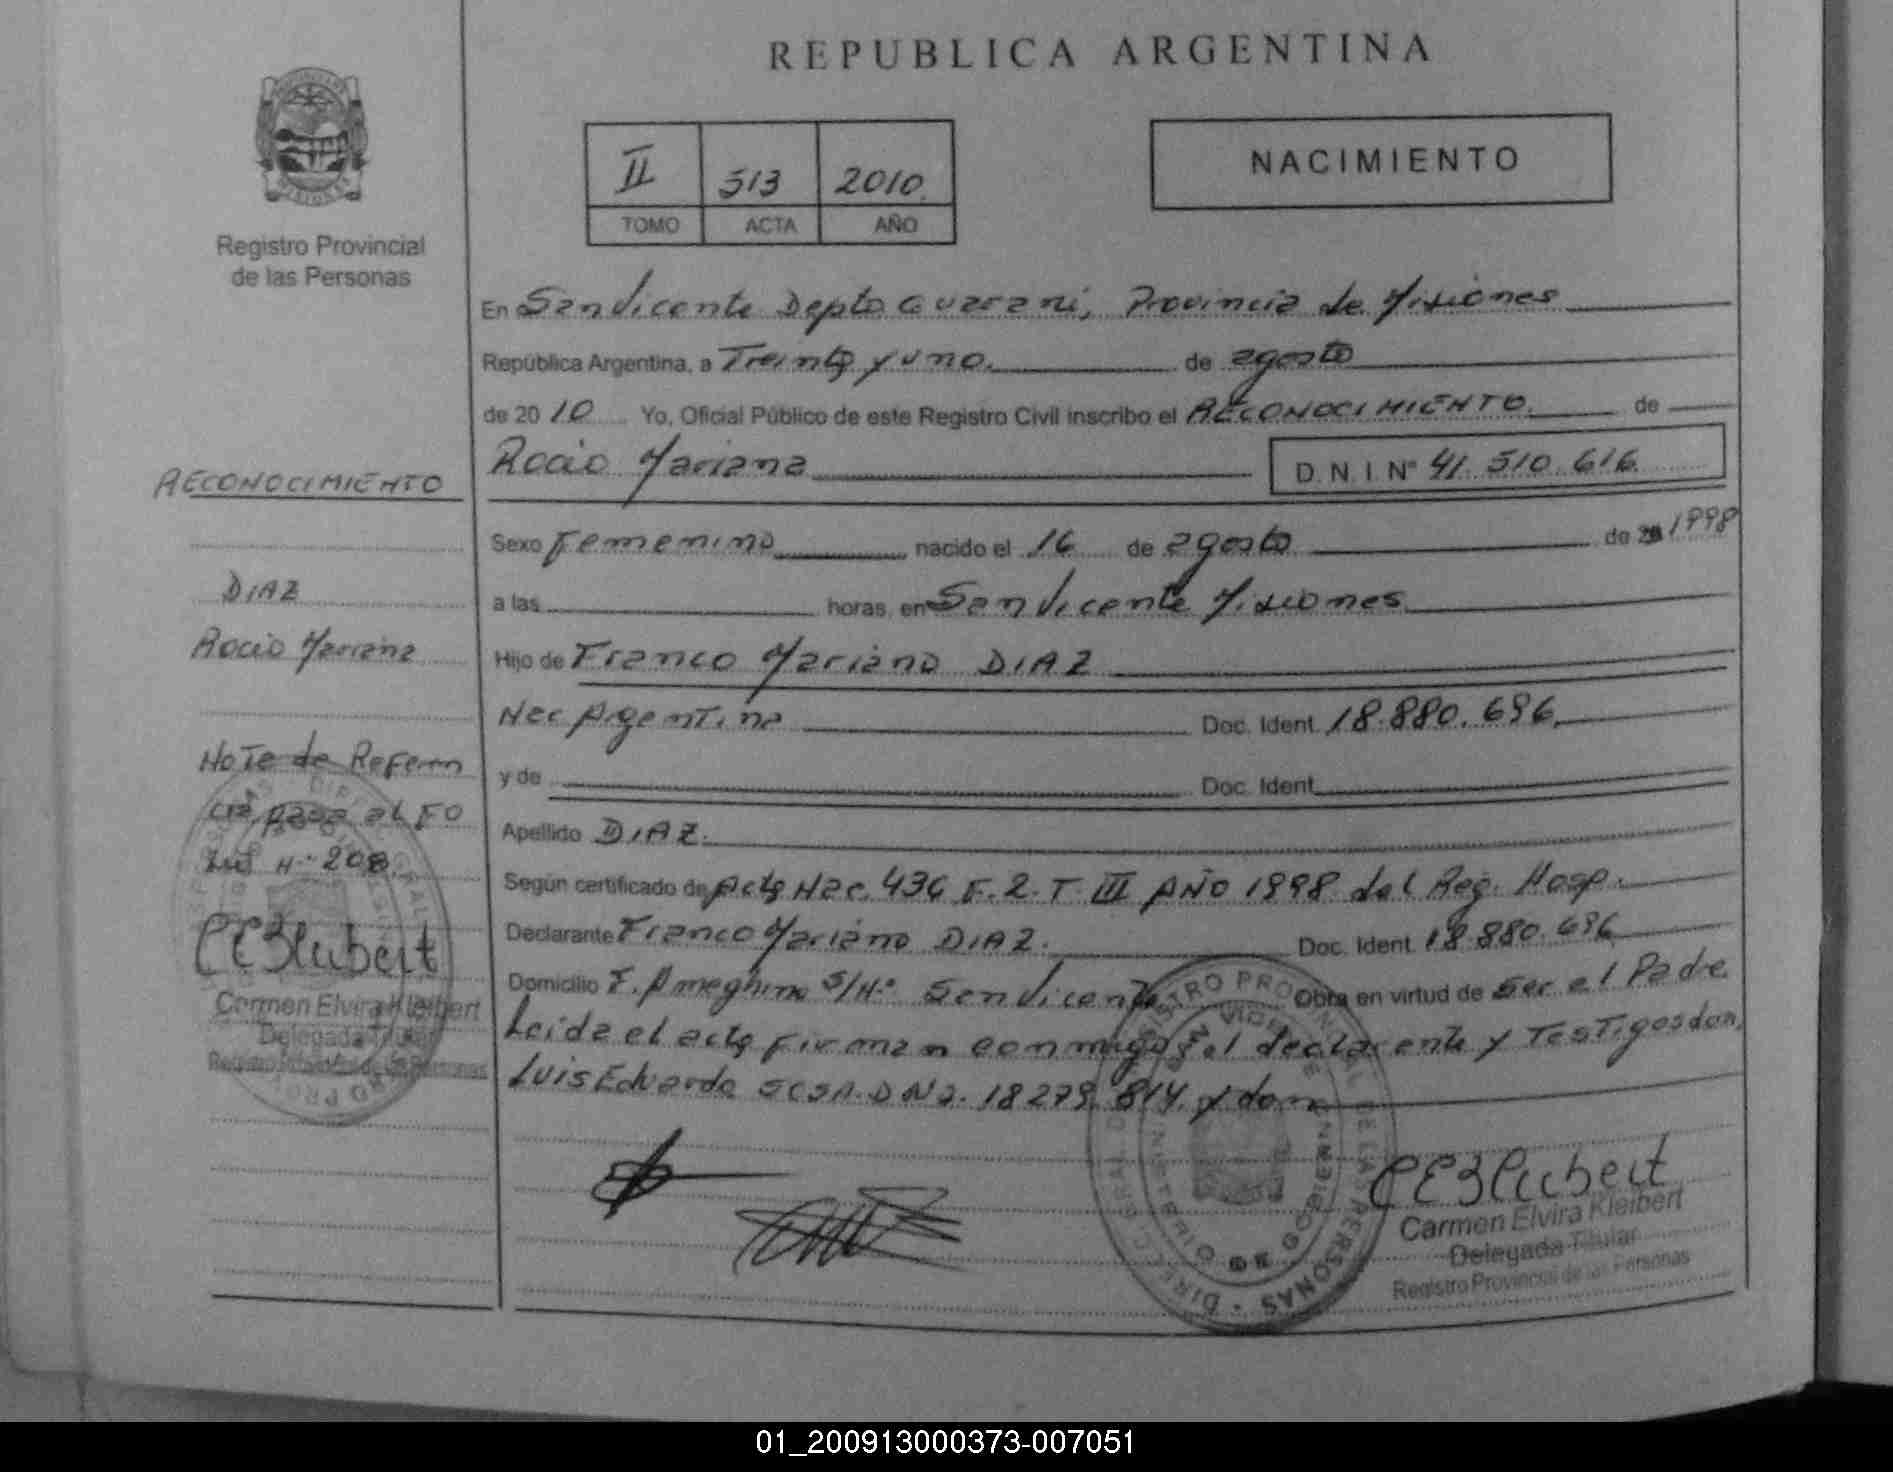 REPUBLICA ARGENTINA
II 513 2010
TOMO ACTA AÑO
NACIMIENTO
Registro Provincial
de las Personas
En San Vicente Depto Guarani, Provincia de Misiones
República Argentina, a Treinta y uno. de agosto
de 20 10 Yo, Oficial Público de este Registro Civil inscribo el RECONOCIMIENTO. de
Rocio Mariana D.N.I. Nº 41.510.616
Sexo Femenino nacido el 16 de agosto de 1998
a las horas, en San Vicente Misiones
Hijo de Franco Mariano DIAZ
Nac Argentina Doc. Ident. 18.880.696
y de Doc. Ident.
Apellido DIAZ.
Según certificado de Acta Nac. 436 F.2. T III AÑO 1998 del Reg. Hosp.
Declarante Franco Mariano DIAZ. Doc. Ident. 18.880.696
Domicilio F. Ameghino S/Nº San Vicente Obra en virtud de Ser el Padre
Leida el acta firman conmigo el declarante y Testigos don
Luis Eduardo SOSA. DNI. 18279.814. y don
RECONOCIMIENTO
DIAZ
Rocio Mariana
Nota de Referen
cia pasa al FO
LIO Nº 208
Carmen Elvira Kleibert
Delegada Titular
Registro Provincial de las Personas
Carmen Elvira Kleibert
Delegada Titular
Registro Provincial de las Personas
01_200913000373-007051